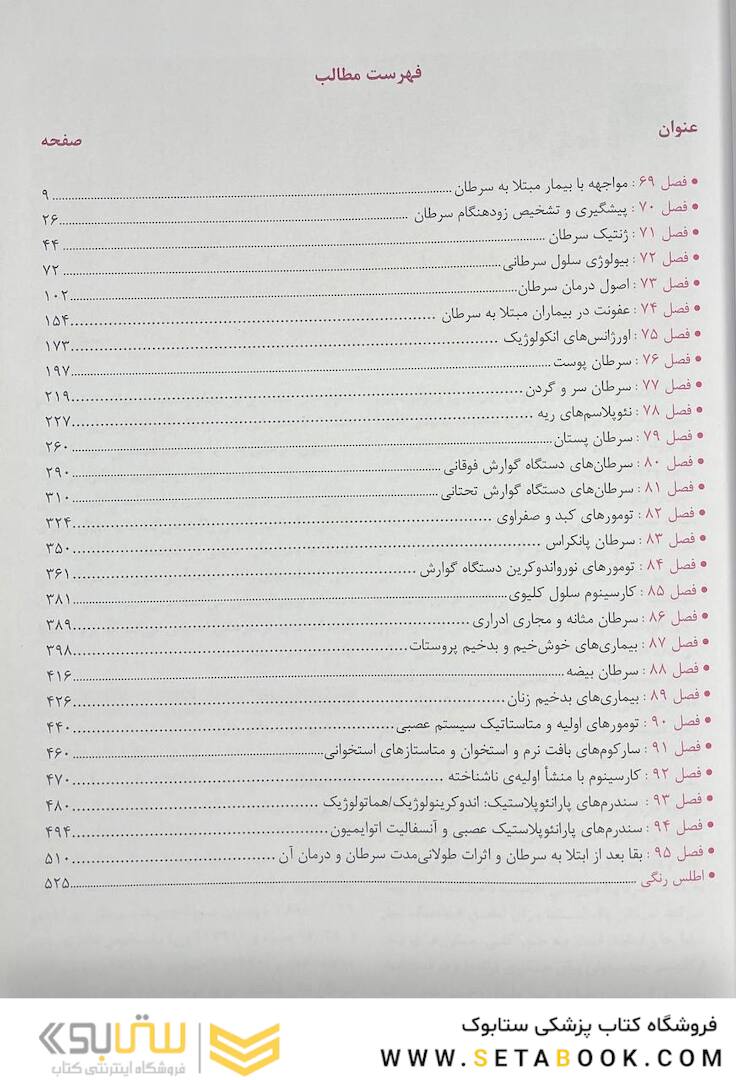 فهرست مطالب
عنوان
صفحه
• فصل ۶۹ : مواجهه با بیمار مبتلا به سرطان ........ ۹
• فصل ۷۰ : پیشگیری و تشخیص زودهنگام سرطان ........ ۲۶
• فصل ۷۱ : ژنتیک سرطان ........ ۴۴
• فصل ۷۲ : بیولوژی سلول سرطانی ........ ۷۲
• فصل ۷۳ : اصول درمان سرطان ........ ۱۰۲
• فصل ۷۴ : عفونت در بیماران مبتلا به سرطان ........ ۱۵۴
• فصل ۷۵ : اورژانس‌های انکولوژیک ........ ۱۷۳
• فصل ۷۶ : سرطان پوست ........ ۱۹۷
• فصل ۷۷ : سرطان سر و گردن ........ ۲۱۹
• فصل ۷۸ : نئوپلاسم‌های ریه ........ ۲۲۷
• فصل ۷۹ : سرطان پستان ........ ۲۶۰
• فصل ۸۰ : سرطان‌های دستگاه گوارش فوقانی ........ ۲۹۰
• فصل ۸۱ : سرطان‌های دستگاه گوارش تحتانی ........ ۳۱۰
• فصل ۸۲ : تومورهای کبد و صفراوی ........ ۳۲۴
• فصل ۸۳ : سرطان پانکراس ........ ۳۵۰
• فصل ۸۴ : تومورهای نورواندوکرین دستگاه گوارش ........ ۳۶۱
• فصل ۸۵ : کارسینوم سلول کلیوی ........ ۳۸۱
• فصل ۸۶ : سرطان مثانه و مجاری ادراری ........ ۳۸۹
• فصل ۸۷ : بیماری‌های خوش‌خیم و بدخیم پروستات ........ ۳۹۸
• فصل ۸۸ : سرطان بیضه ........ ۴۱۶
• فصل ۸۹ : بیماری‌های بدخیم زنان ........ ۴۲۶
• فصل ۹۰ : تومورهای اولیه و متاستاتیک سیستم عصبی ........ ۴۴۰
• فصل ۹۱ : سارکوم‌های بافت نرم و استخوان و متاستازهای استخوانی ........ ۴۶۰
• فصل ۹۲ : کارسینوم با منشأ اولیه‌ی ناشناخته ........ ۴۷۰
• فصل ۹۳ : سندرم‌های پارانئوپلاستیک: اندوکرینولوژیک/هماتولوژیک ........ ۴۸۰
• فصل ۹۴ : سندرم‌های پارانئوپلاستیک عصبی و آنسفالیت اتوایمیون ........ ۴۹۴
• فصل ۹۵ : بقا بعد از ابتلا به سرطان و اثرات طولانی‌مدت سرطان و درمان آن ........ ۵۱۰
• اطلس رنگی ........ ۵۲۵
فروشگاه کتاب پزشکی ستابوک
WWW.SETABOOK.COM
ستابوک
فروشگاه اینترنتی کتاب